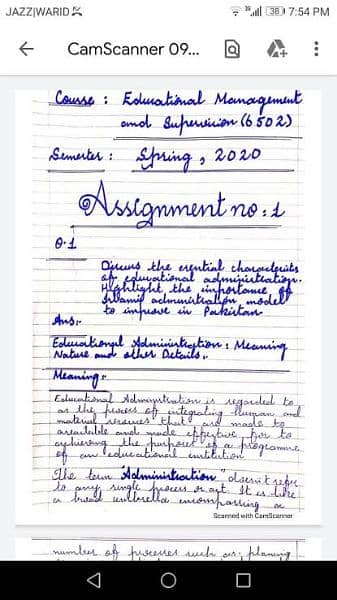 JAZZ|WARID 38 7:54 PM
CamScanner 09...
Course : Educational Management
and Supervision (6502)
Semester : Spring, 2020
Assignment no: 1
Q.1
Discuss the essential characterists
of educational administration.
Highlight the importance of
Islamic administration model
to improve in Pakistan
Ans:-
Educational Administration : Meaning
Nature and other Details:-
Meaning:-
Educational Administration is regarded to
as the process of integrating human and
material resources that are made to
available and made effective for to
achieving the purpose of a programme
of an educational institution
The term "Administration" doesn't refer
to any single process or act. It is like
a broad umbrella encompassing a
Scanned with CamScanner
number of processes such as: planning